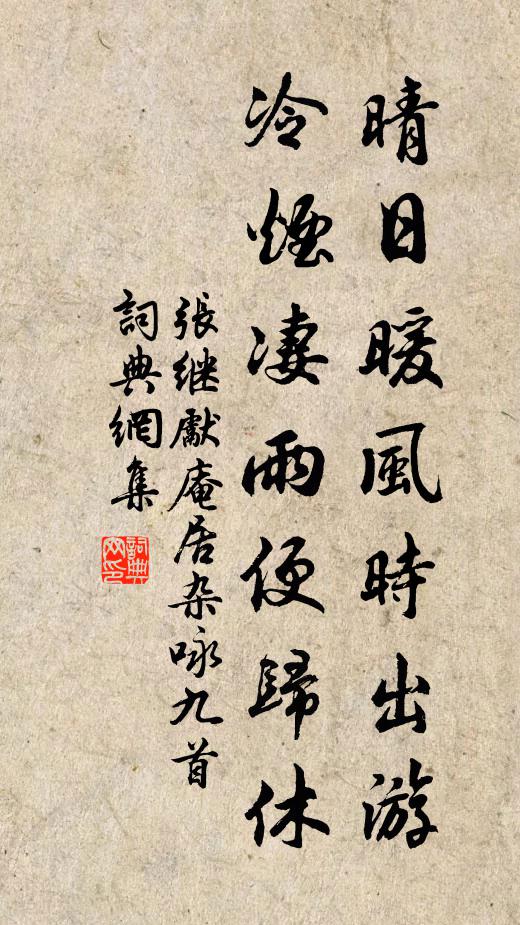 晴日暖風時出游
冷煙凄雨便歸休
張继獻庵居杂咏九首
詞典網集
詞典
网印